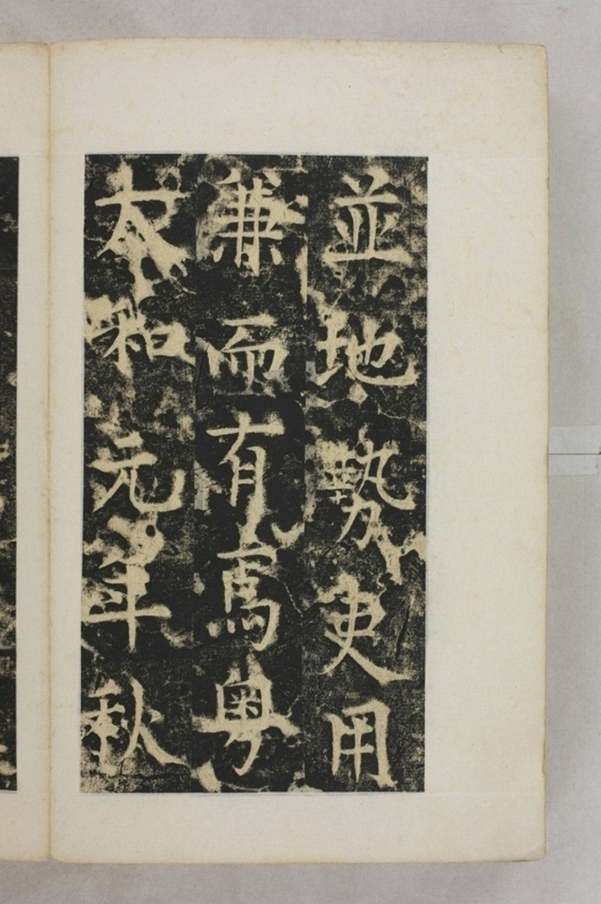 並地勢吏用
兼而有焉粤
太和元年秋